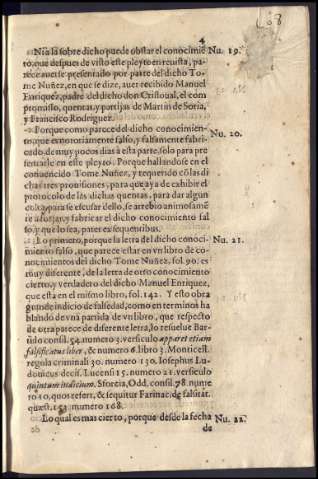 4
Ni a lo sobre dicho puede obstar el conocimiẽ Nu. 19.
to, que despues de visto este pleyto en reuista, pa-
rece auerse presentado por parte del dicho To-
me Nuñez, en que se dize, auer recibido Manuel
Enriquez, padre del dicho don Cristoual, el com
promisso, quentas, y partijas de Martin de Soria,
y Francisco Rodriguez.
Porque como parece del dicho conocimien- Nu. 20.
to, que es notoriamente falso, y falsamente fabri-
cado, de muy pocos dias a esta parte, solo para pre
sentarle en este pleyto. Porque hallandose en el
conuencido Tome Nuñez, y requerido cõ las di
chas tres prouisiones, para que aya de exhibir el
protocolo de las dichas quentas, para dar algun
a fabricar el dicho conocimiento fal
so, y que lo sea, patet ex sequentibus.
Lo primero, porque la letra del dicho conoci- Nu. 21.
miento falso, que parece estar en vn libro de co-
nocimientos del dicho Tome Nuñez, fol. 90. es
muy diferente, de la letra de otro conocimiento
cierto, y verdadero del dicho Manuel Enriquez,
que està en el mismo libro, fol. 142. Y esto obra
grande indicio de falsedad, como en terminos ha
blando de vna partida de vn libro, que respecto
de otra parece de diferente letra, lo resuelue Bar-
consil. 54. numero 3. versiculo apparet etiam
falsificatus liber, & numero 6. libro 3. Monticell.
regula criminali 30. numero 130. Iosephus Lu-
douicus decis. Lucensi 15. numero 21. versiculo
quintum indicium. Sforcia, Odd. consil. 78. nume
ro 40. quos refert, & sequitur Farinac. de falsitat.
quæst. 153. numero 168.
Lo qual es mas cierto, porque desde la fecha Nu. 22.
de